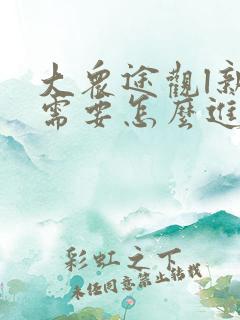 大眾途觀l新
需要怎麼進
彩虹之下
未經同意禁止轉載